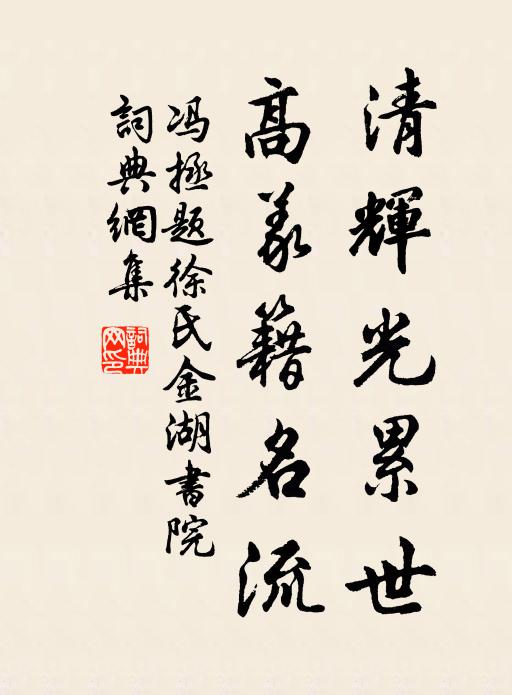 清輝光累世
高義籍名流
冯拯题徐氏金湖書院
詞典網集
詞典
网印